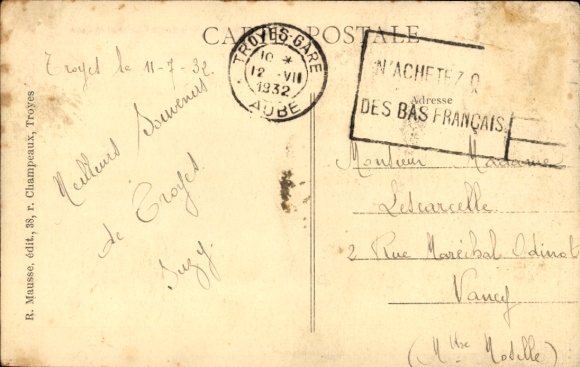 CARTE POSTALE
Troyes le 11-7-32.
TROYES-GARE
10 *
12 -VII
1932
AUBE
N'ACHETEZ Q
DES BAS FRANÇAIS
Adresse
Meilleurs Souvenirs
de Troyes
Suzy.
Monsieur Madame
Lescarcelle
2 Rue Maréchal Odinot
Nancy
(Mthe Moselle)
R. Mausse, édit., 38, r. Champeaux, Troyes